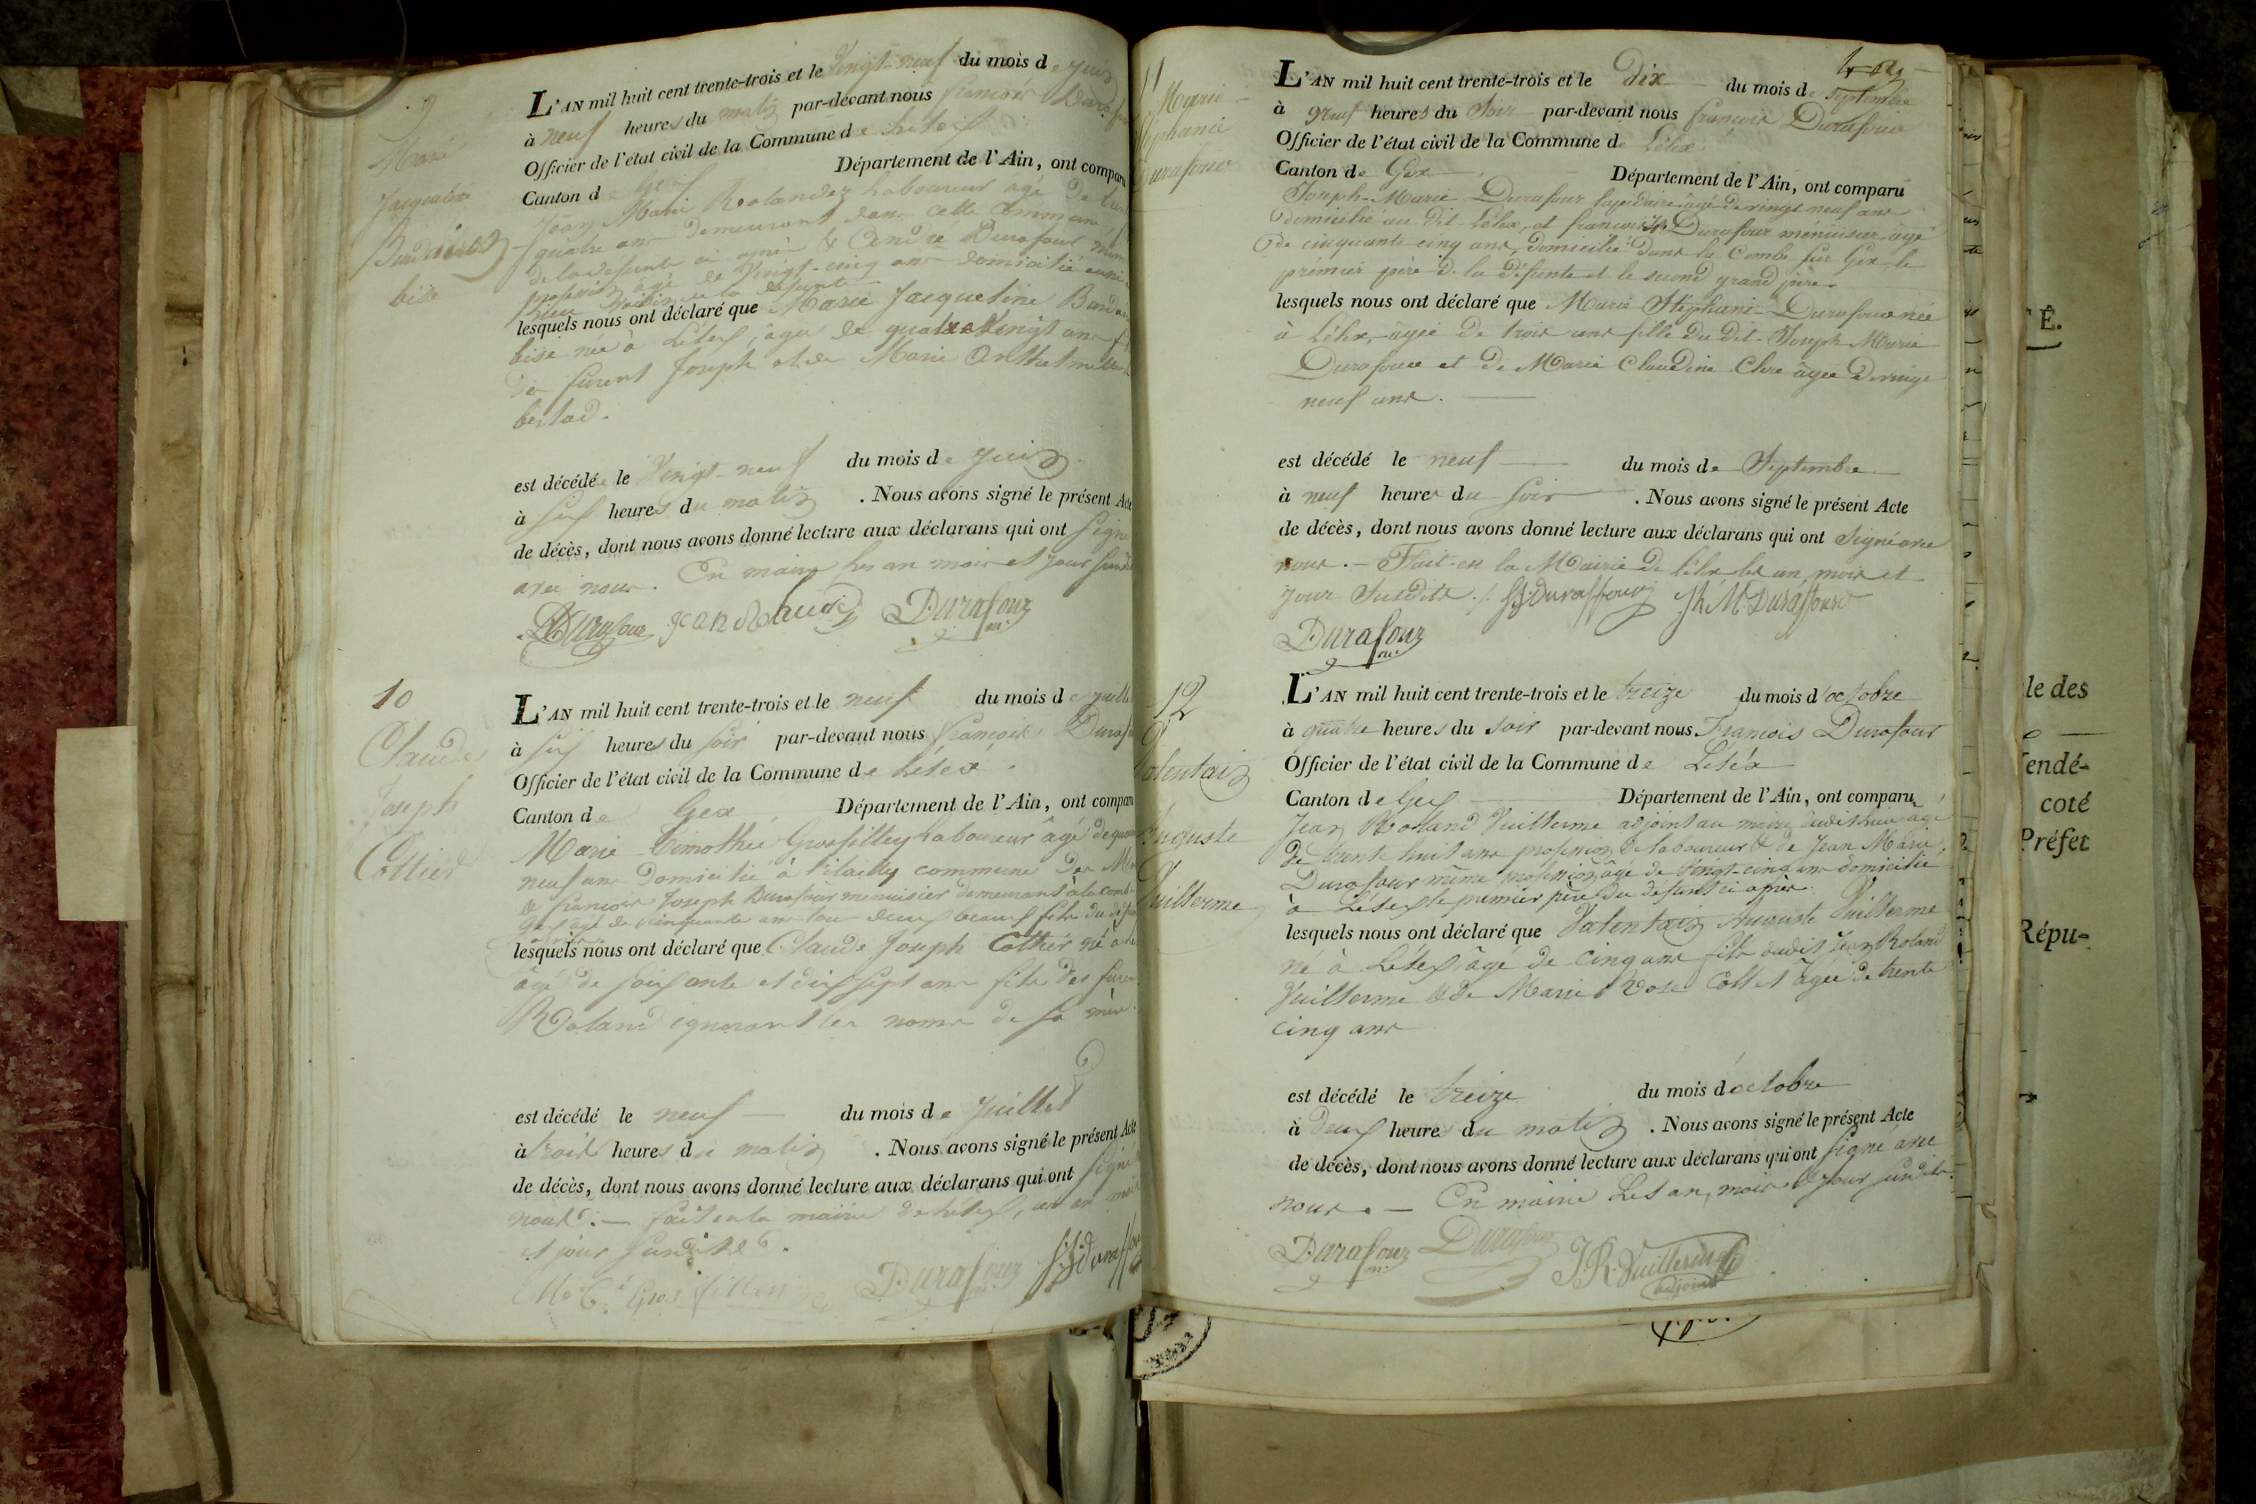 9
Marie
Jacqueline
bise
L'AN mil huit cent trente-trois et le Vingt-neuf du mois de juin
à neuf heures du matin par-devant nous françois
Officier de l'état civil de la Commune de Lélex
Canton de Gex Département de l'Ain, ont comparu
Jean Marie Rolandez Laboureur âgé de
quatre ans demeurant dans cette Commune
de la défunte ci après & André Durafour
profession âgé de Vingt-cinq ans domicilié
lesquels nous ont déclaré que Marie Jacqueline
bise née à Lélex, âgée de quatre Vingt ans
de furent Joseph et de Marie
est décédée le Vingt-neuf du mois de juin
à six heures du matin . Nous avons signé le présent Acte
de décès, dont nous avons donné lecture aux déclarans qui ont signé
avec nous. En mairie les an mois et jour susdits
Durafour Durafour m.
10
Claude
Joseph
Cottier
L'AN mil huit cent trente-trois et le neuf du mois de juillet
à six heures du soir par-devant nous françois
Officier de l'état civil de la Commune de Léléx.
Canton de Gex Département de l'Ain, ont comparu
Marie Timothée Grosfilley Laboureur âgé de
neuf ans domicilié à commune de
& françois Joseph Durafour menuisier demeurant à la combe
Gex âgé de Cinquante ans tous deux beaux fils du
lesquels nous ont déclaré que Claude Joseph Cottier né à
âgé de soixante et dix sept ans fils des
Roland ignorant les noms de sa mère.
est décédé le neuf du mois de juillet
à trois heures du matin . Nous avons signé le présent Acte
de décès, dont nous avons donné lecture aux déclarans qui ont signé
nous. — fait en la mairie de Lélex, les an mois
et jour susdits.
Durafour m.
11
Marie
Stéphanie
Durafour
L'AN mil huit cent trente-trois et le dix du mois de Septembre
à neuf heures du Soir par-devant nous françois Durafour
Officier de l'état civil de la Commune de Lélex
Canton de Gex Département de l'Ain, ont comparu
Joseph-Marie Durafour lapidaire âgé de vingt neuf ans
domicilié au dit Lélex, et françois Jh Durafour menuisier âgé
de cinquante cinq ans, domicilié dans la Combe sur Gex, le
prémier père de la défunte et le second grand père.
lesquels nous ont déclaré que Marie Stéphanie Durafour née
à Lélex, âgée de trois ans fille du dit Joseph-Marie
Durafour et de Marie Claudine âgée de vingt
neuf ans.
est décédé le neuf du mois de Septembre
à neuf heures du soir . Nous avons signé le présent Acte
de décès, dont nous avons donné lecture aux déclarans qui ont Signé avec
nous. — Fait en la Mairie de Lélex les an, mois et
jour Susdits. Jh M Duraffour
Durafour m.
12
Valentain
Auguste
Vuillerme
L'AN mil huit cent trente-trois et le treize du mois d'octobre
à quatre heures du soir par-devant nous François Durafour
Officier de l'état civil de la Commune de Léléx
Canton de Gex Département de l'Ain, ont comparu
Jean Roland Vuillerme adjoint au maire dudit lieu âgé
de trente huit ans profession de laboureur & de Jean Marie
Durafour même profession âgé de Vingt-cinq ans domicilié
à Lélex le premier père du défunt ci après
lesquels nous ont déclaré que Valentain Auguste Vuillerme
né à Lélex âgé de Cinq ans fils dudit Jean Roland
Vuillerme & de Marie Rose Collet âgée de trente
cinq ans
est décédé le treize du mois d'octobre
à deux heures du matin . Nous avons signé le présent Acte
de décès, dont nous avons donné lecture aux déclarans qui ont signé avec
nous. — En mairie Les an, mois & jour susdits.
Durafour m. Durafour J.R. Vuillerme
adjoint
É.
le des
endé-
coté
Préfet
Répu-